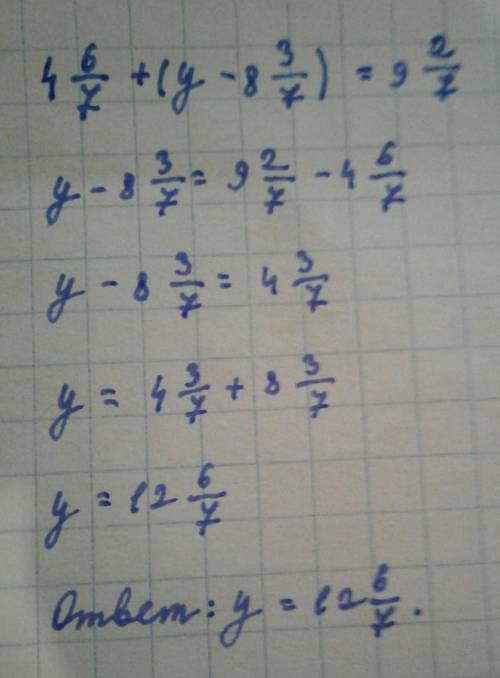 4 6/7 + (y - 8 3/7) = 9 2/7
y - 8 3/7 = 9 2/7 - 4 6/7
y - 8 3/7 = 4 3/7
y = 4 3/7 + 8 3/7
y = 12 6/7
Ответ: y = 12 6/7.